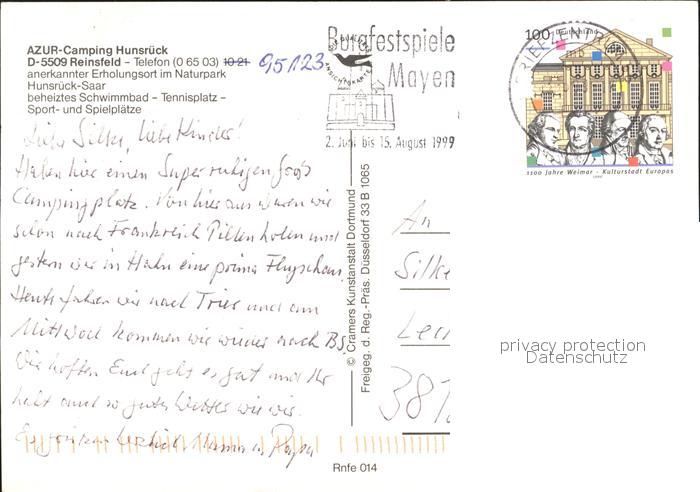 AZUR-Camping Hunsrück
D-5509 Reinsfeld – Telefon (0 65 03) 10 21 95123
anerkannter Erholungsort im Naturpark
Hunsrück-Saar
beheiztes Schwimmbad – Tennisplatz –
Sport- und Spielplätze
Burgfestspiele
Mayen
2. Juni bis 15. August 1999
ANSICHTSKARTE
BRIEFZENTRUM
100 Deutschland
1100 Jahre Weimar - Kulturstadt Europas
1999
Liebe Silke, liebe Kinder!
Haben hier einen Superruhigen
Campingplatz. Von hier aus waren wir
schon nach Frankreich holen und
gestern war in Hahn eine prima Flugschau.
Heute fahren wir nach Trier und am
Mittwoch kommen wir wieder nach BS.
Wir hoffen Euch geht es gut und Ihr
habt auch so gutes Wetter wie wir.
Mama u. Papa
© Cramers Kunstanstalt Dortmund
Freigeg. d. Reg.-Präs. Düsseldorf 33 B 1065
An
Silke
381
Rnfe 014
privacy protection
Datenschutz